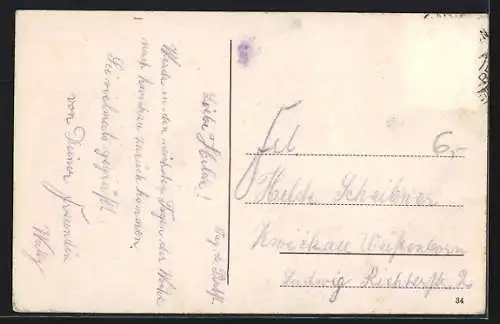 Liebe Helde!
Werde in den nächsten Tagen der Woche
nach Zwickau zurück kommen.
Sei vielmals gegrüßt
von Deiner Freundin
Wally
Frl.
Helde Scheibner
Zwickau Weißenborn
Ludwig Richterstr. 2
6,-
34